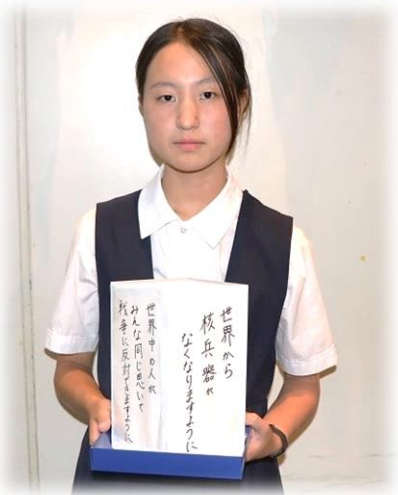 世界から
核兵器が
なくなりますように
世界中の人が
みんな同じ思いで
戦争に反対できますように